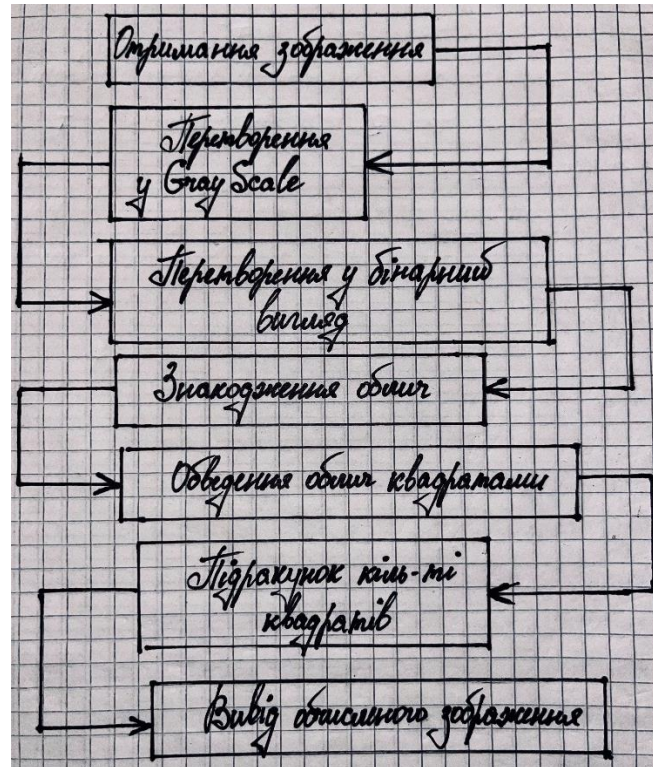 Отримання зображення
Перетворення
у Gray Scale
Перетворення у бінарний
вигляд
Знаходження облич
Обведення облич квадратами
Підрахунок кіль-ті
квадратів
Вивід обчисленого зображення